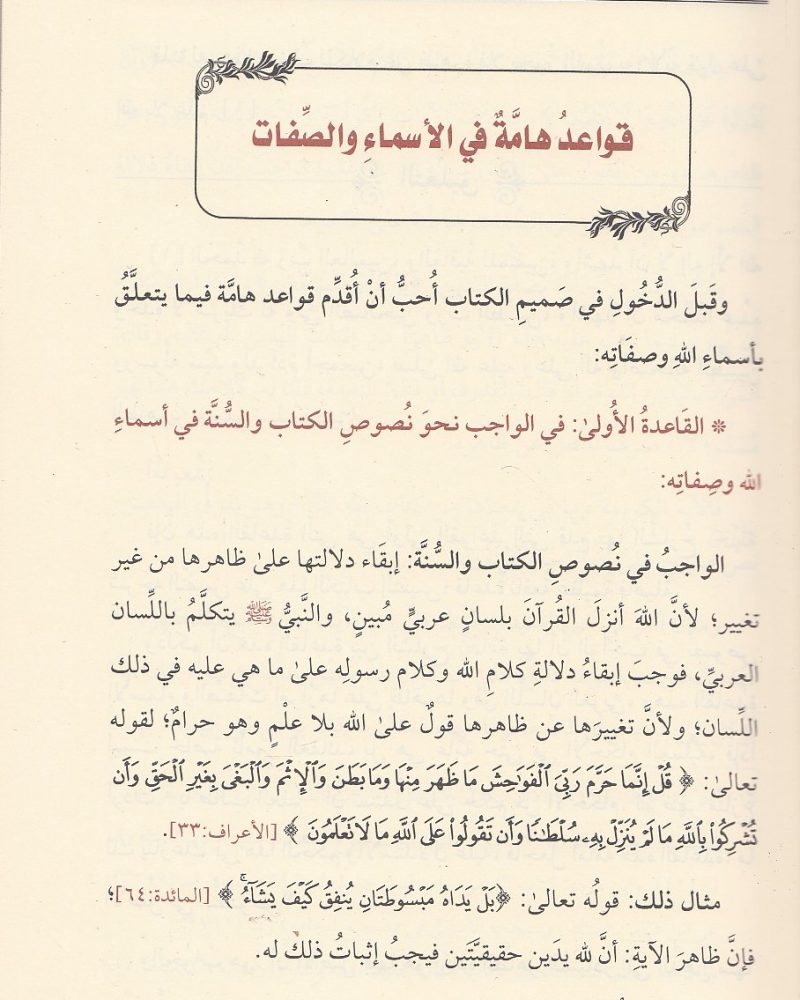 قواعدُ هامَّةٌ في الأسماءِ والصِّفات
وقَبلَ الدُّخُولِ في صَميمِ الكتاب أُحبُّ أنْ أُقدِّم قواعد هامَّة فيما يتعلَّقُ
بأسماءِ اللهِ وصفَاتِه:
* القَاعدةُ الأُولىٰ: في الواجب نحوَ نُصوصِ الكتاب والسُّنَّة في أسماءِ
الله وصِفاتِه:
الواجبُ في نُصوصِ الكتابِ والسُّنَّة: إبقَاء دلالتها علىٰ ظاهرها من غير
تغيير؛ لأنَّ اللهَ أنزلَ القُرآنَ بلسانٍ عربيٍّ مُبينٍ، والنَّبيُّ ﷺ يتكلَّمُ باللِّسان
العربيِّ، فوجبَ إبقاءُ دلالةِ كلامِ الله وكلام رسولِه علىٰ ما هي عليه في ذلك
اللِّسان؛ ولأنَّ تغييرَها عن ظاهرها قولٌ علىٰ الله بلا علْمٍ وهو حرامٌ؛ لقوله
تعالىٰ: ﴿ قُلْ إِنَّمَا حَرَّمَ رَبِّيَ ٱلْفَوَٰحِشَ مَا ظَهَرَ مِنْهَا وَمَا بَطَنَ وَٱلْإِثْمَ وَٱلْبَغْىَ بِغَيْرِ ٱلْحَقِّ وَأَن
تُشْرِكُوا۟ بِٱللَّهِ مَا لَمْ يُنَزِّلْ بِهِۦ سُلْطَٰنًا وَأَن تَقُولُوا۟ عَلَى ٱللَّهِ مَا لَا تَعْلَمُونَ ﴾ [الأعراف:٣٣].
مثال ذلك: قولُه تعالىٰ: ﴿بَلْ يَدَاهُ مَبْسُوطَتَانِ يُنفِقُ كَيْفَ يَشَآءُ ۚ ﴾ [المائدة:٦٤]؛
فإنَّ ظاهرَ الآيةِ: أنَّ لله يدَين حقيقيَّتَين فيجبُ إثباتُ ذلك له.